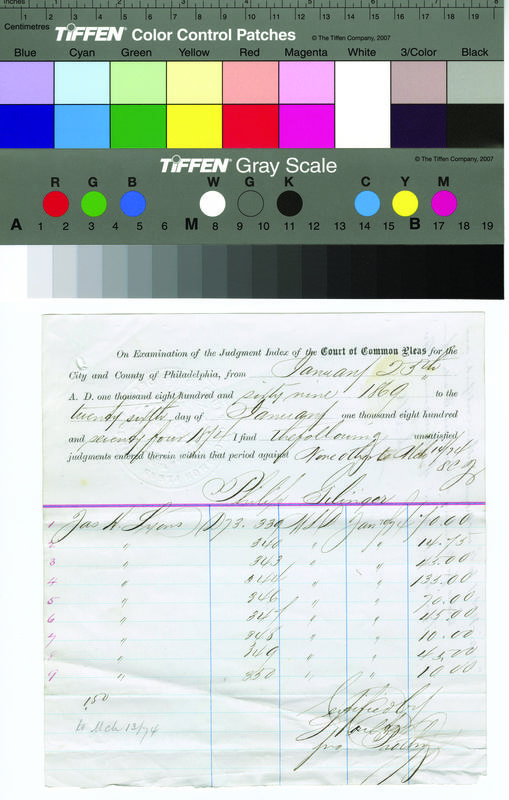 Inches 1 2 3 4 5 6 7 8
1 2 3 4 5 6 7 8 9 10 11 12 13 14 15 16 17 18 19
Centimetres TIFFEN Color Control Patches © The Tiffen Company, 2007
Blue Cyan Green Yellow Red Magenta White 3/Color Black
TIFFEN Gray Scale © The Tiffen Company, 2007
R G B W G K C Y M
A 1 2 3 4 5 6 M 8 9 10 11 12 13 14 15 B 17 18 19
On Examination of the Judgment Index of the Court of Common Pleas for the
City and County of Philadelphia, from January 25th
A. D. one thousand eight hundred and sixty nine 1869 to the
twenty sixth day of January one thousand eight hundred
and seventy four 1874 I find the following unsatisfied
judgments entered therein within that period against None other to Mch 14/74
Philip
1 Jas H Lyons D 73. 339 70.00
2 " 340 " " 14.75
3 " 343 " " 45.00
4 " 344 " " 135.00
5 " 346 " " 70.00
6 " 347 " " 45.00
7 " 348 " " 10.00
8 " 349 " " 45,00
9 " 350 " " 10 00
1.50
to Mch 13/74
Certified by
pro Prothy